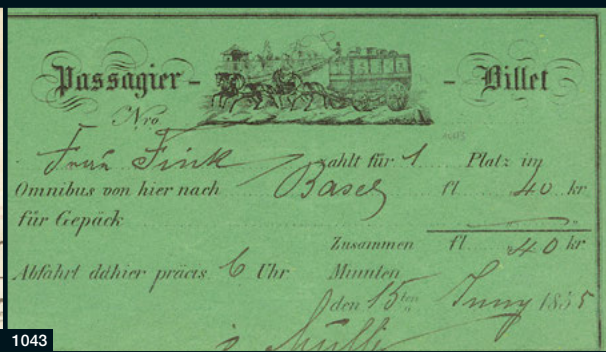 Passagier - - Billet
Nro
Frau Fink zahlt für 1 Platz im
Omnibus von hier nach Basel fl 40 kr
für Gepäck "
Zusammen fl. 40 kr
Abfahrt dahier präcis 6 Uhr Minuten
den 15ten Juny 1855
1043